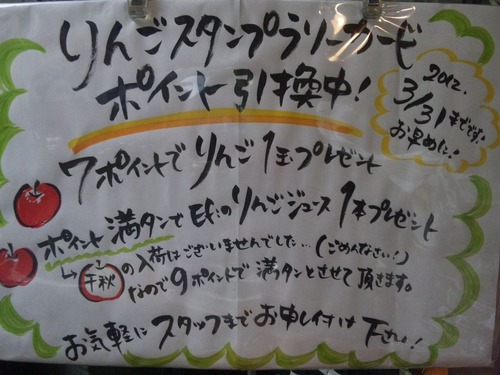 りんごスタンプラリーカード
ポイント引換中!
2012.
3/31までです!
お早めに!
7ポイントでりんご1玉プレゼント
ポイント満タンで のりんごジュース1本プレゼント
千秋の入荷はございませんでした…(ごめんなさい!)
なので9ポイントで満タンとさせて頂きます。
お気軽にスタッフまでお申し付け下さい!